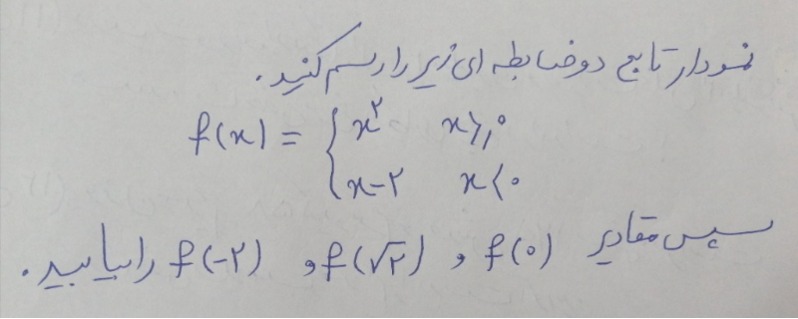 نمودار تابع دو ضابطه ای زیر را رسم کنید.
f(x) = { x² x≥۰
x-۲ x<۰
سپس مقادیر f(۰) و f(√۲) و f(-۲) را بیابید.